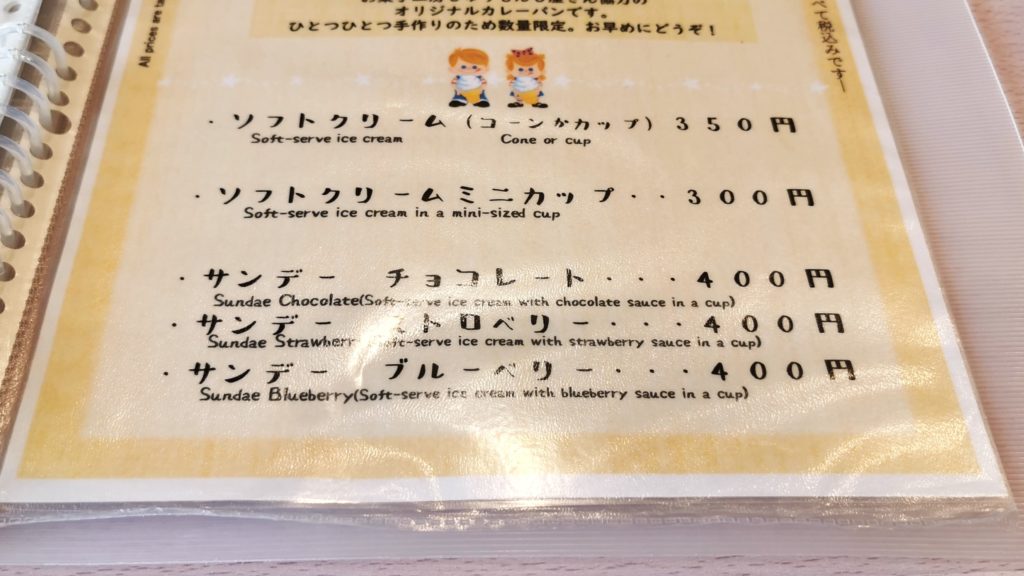 オリジナルカレーパンです。
ひとつひとつ手作りのため数量限定。お早めにどうぞ！
All prices are
べて税込みです―
・ソフトクリーム（コーンかカップ）３５０円
Soft-serve ice cream Cone or cup
・ソフトクリームミニカップ・・３００円
Soft-serve ice cream in a mini-sized cup
・サンデー　チョコレート・・・４００円
Sundae Chocolate(Soft-serve ice cream with chocolate sauce in a cup)
・サンデー　ストロベリー・・・４００円
Sundae Strawberry(Soft-serve ice cream with strawberry sauce in a cup)
・サンデー　ブルーベリー・・・４００円
Sundae Blueberry(Soft-serve ice cream with blueberry sauce in a cup)